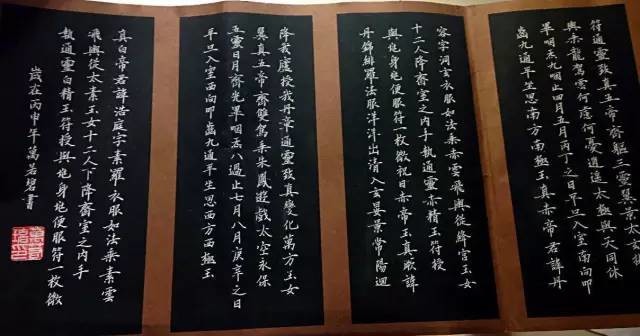 符通靈致真五帝齊軀三靈翼景太玄
輿朱龍駕雲何慮何憂逍遙太極與天同休
畢咽炁八咽止四月五月丙丁之日平旦入室南向叩
齒九通平坐思南方南極玉真赤帝君諱丹
容字洞玄衣服如法乘赤雲飛輿從絳宮玉女
十二人降齋室之內手執通靈赤精玉符授
與兆身兆便服符一枚微祝曰赤帝玉真厥諱
丹錦緋羅法服洋洋出清入玄晏景常陽迴
降我廬授我丹章通靈致真變化萬方玉女
翼真五帝齊雙駕乘朱鳳遊戲太空永保
五靈日月齊光畢咽炁八過止七月八月庚辛之日
平旦入室西向叩齒九通平坐思西方西極玉
真白帝君諱浩庭字素羅衣服如法乘素雲
飛輿從太素玉女十二人下降齋室之內手
執通靈白精玉符授與兆身兆便服符一枚微
歲在丙申年萬若碧書